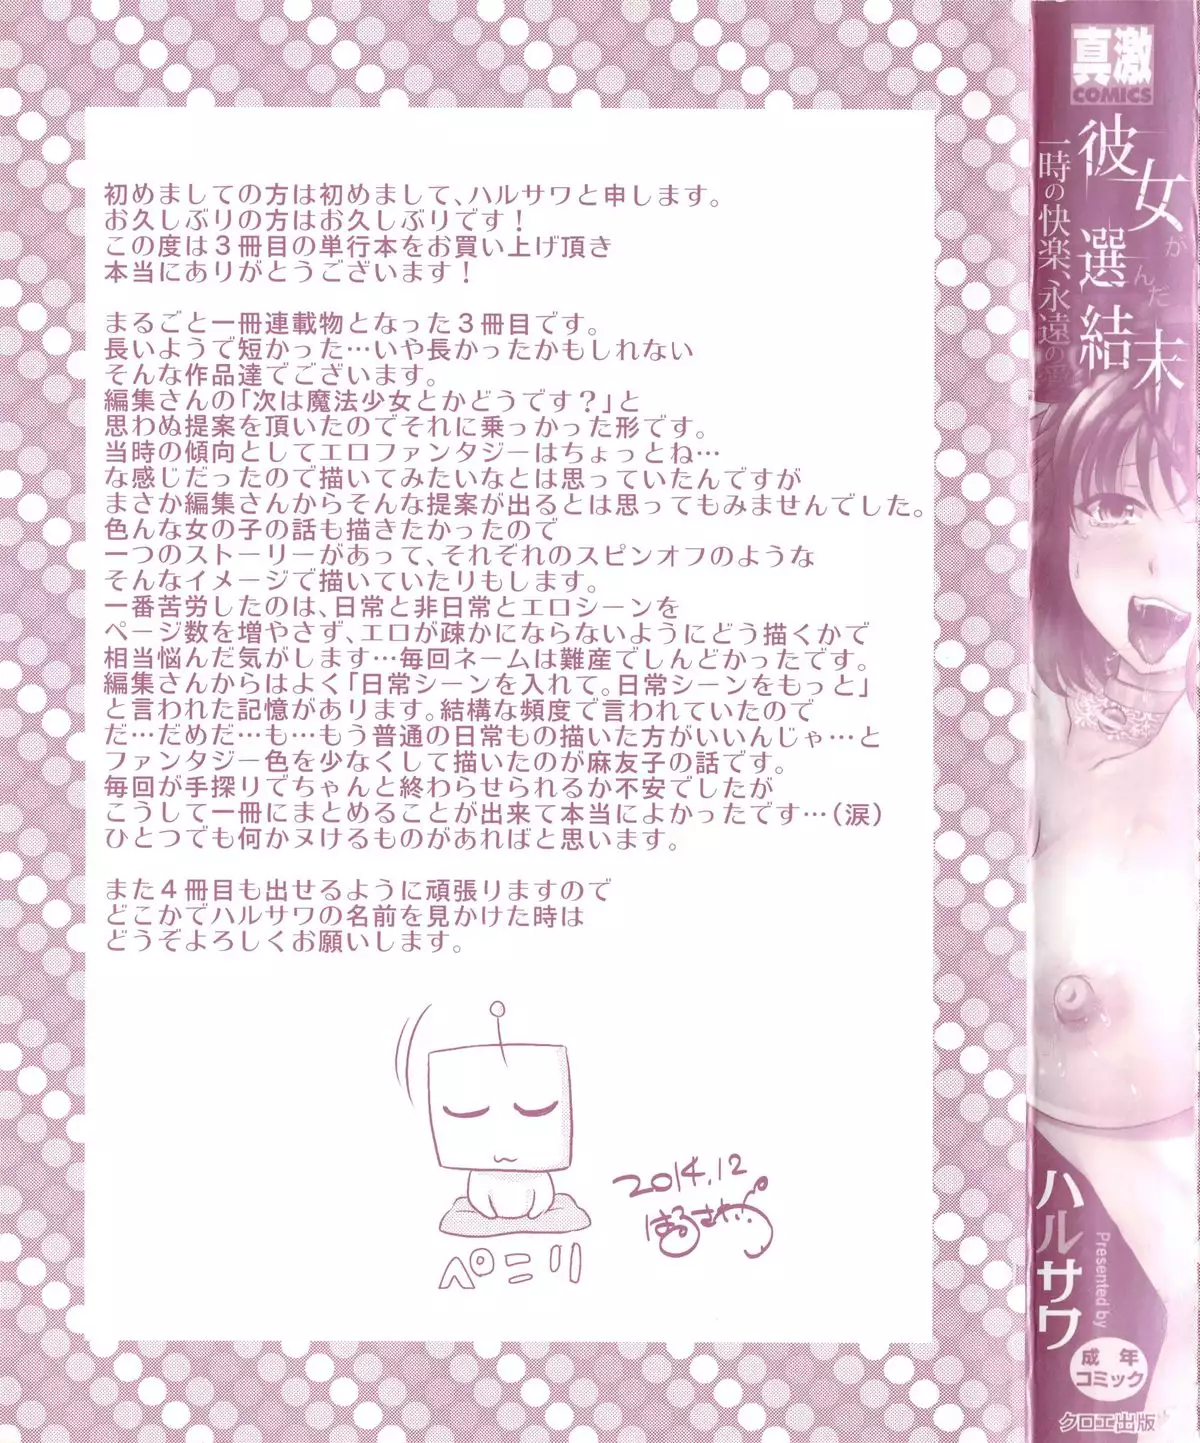 初めましての方は初めまして、ハルサワと申します。
お久しぶりの方はお久しぶりです！
この度は３冊目の単行本をお買い上げ頂き
本当にありがとうございます！
まるごと一冊連載物となった３冊目です。
長いようで短かった…いや長かったかもしれない
そんな作品達でございます。
編集さんの「次は魔法少女とかどうです？」と
思わぬ提案を頂いたのでそれに乗っかった形です。
当時の傾向としてエロファンタジーはちょっとね…
な感じだったので描いてみたいなとは思っていたんですが
まさか編集さんからそんな提案が出るとは思ってもみませんでした。
色んな女の子の話も描きたかったので
一つのストーリーがあって、それぞれのスピンオフのような
そんなイメージで描いていたりもします。
一番苦労したのは、日常と非日常とエロシーンを
ページ数を増やさず、エロが疎かにならないようにどう描くかで
相当悩んだ気がします…毎回ネームは難産でしんどかったです。
編集さんからはよく「日常シーンを入れて。日常シーンをもっと」
と言われた記憶があります。結構な頻度で言われていたので
だ…だめだ…も…もう普通の日常もの描いた方がいいんじゃ…と
ファンタジー色を少なくして描いたのが麻友子の話です。
毎回が手探りでちゃんと終わらせられるか不安でしたが
こうして一冊にまとめることが出来て本当によかったです…（涙）
ひとつでも何かヌけるものがあればと思います。
また４冊目も出せるように頑張りますので
どこかでハルサワの名前を見かけた時は
どうぞよろしくお願いします。
2014.12
はるさわ
ペニリ
真激
COMICS
彼女が選んだ結末
一時の快楽、永遠の愛
ハルサワ
Presented by
成年
コミック
クロエ出版